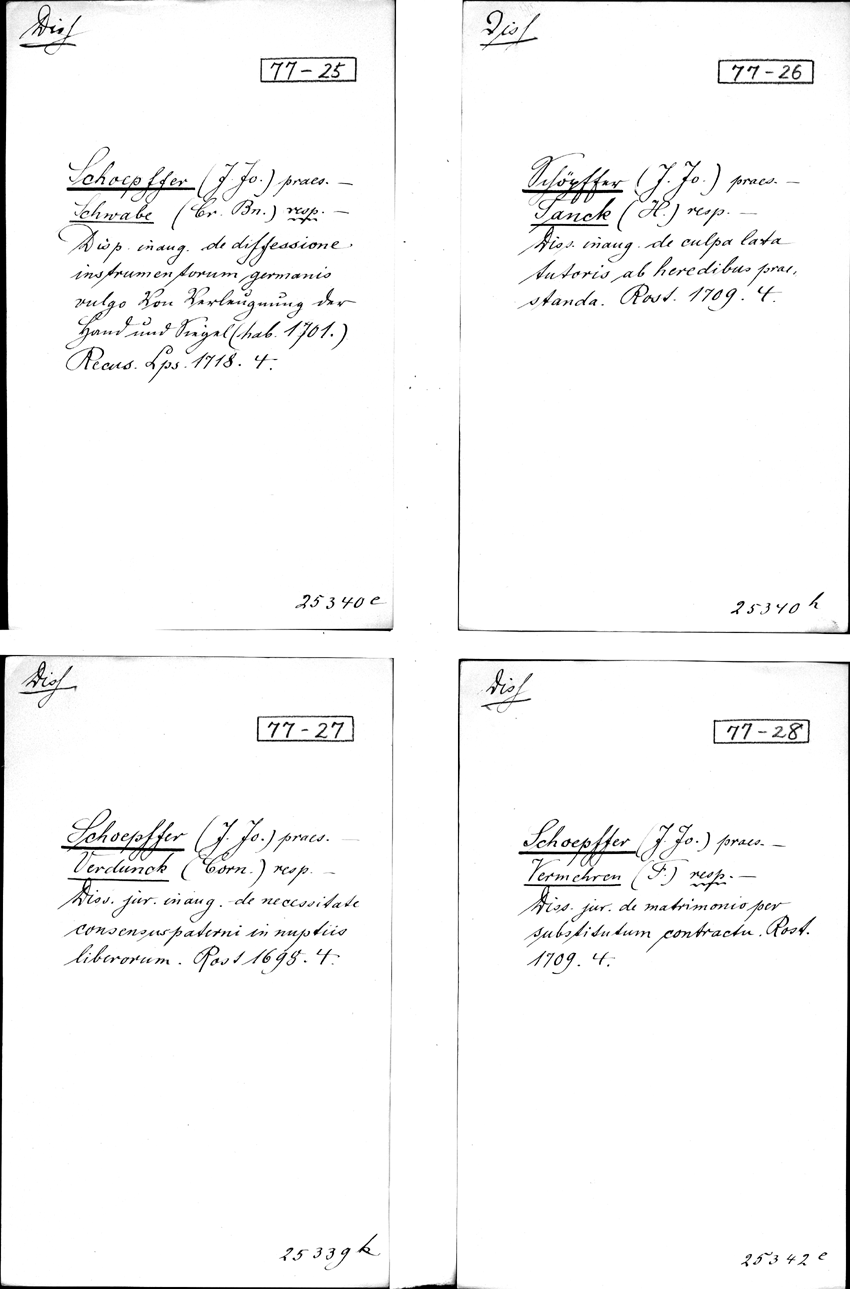 Diss
77-25
Schoepffer (J. Jo.) praes. —
Schwabe (Cr. Bn.) resp. —
Disp. inaug. de diffessione
instrumentorum germanis
vulgo Von Verleugnung der
Hand und Siegel (hab. 1701.)
Recus. Lps. 1718. 4.
25340 e
Diss
77-26
Schöpffer (J. Jo.) praes. —
Tanck (H.) resp. —
Diss. inaug. de culpa lata
tutoris ab heredibus prae-
standa. Rost. 1709. 4.
25340 h
Diss
77-27
Schoepffer (J. Jo.) praes. —
Verdunck (Corn.) resp. —
Diss. jur. inaug. de necessitate
consensus paterni in nuptiis
liberorum. Rost 1695. 4.
25339 k
Diss
77-28
Schoepffer (J. Jo.) praes. —
Vermehren (F.) resp. —
Diss. jur. de matrimonio per
substitutum contractu. Rost.
1709. 4.
25342 e